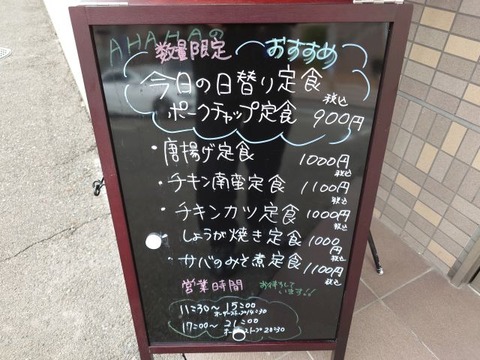 AHAHAの
数量限定 おすすめ
今日の日替り定食
・ポークチャップ定食 税込 900円
・唐揚げ定食 1000円 税込
・チキン南蛮定食 1100円 税込
・チキンカツ定食 1000円 税込
しょうが焼き定食 1000円 税込
・サバのみそ煮定食 1100円 税込
営業時間 お待ちしています!!
11:30〜15:00
オーダーストップ14:30
17:00〜21:00
オーダーストップ20:30